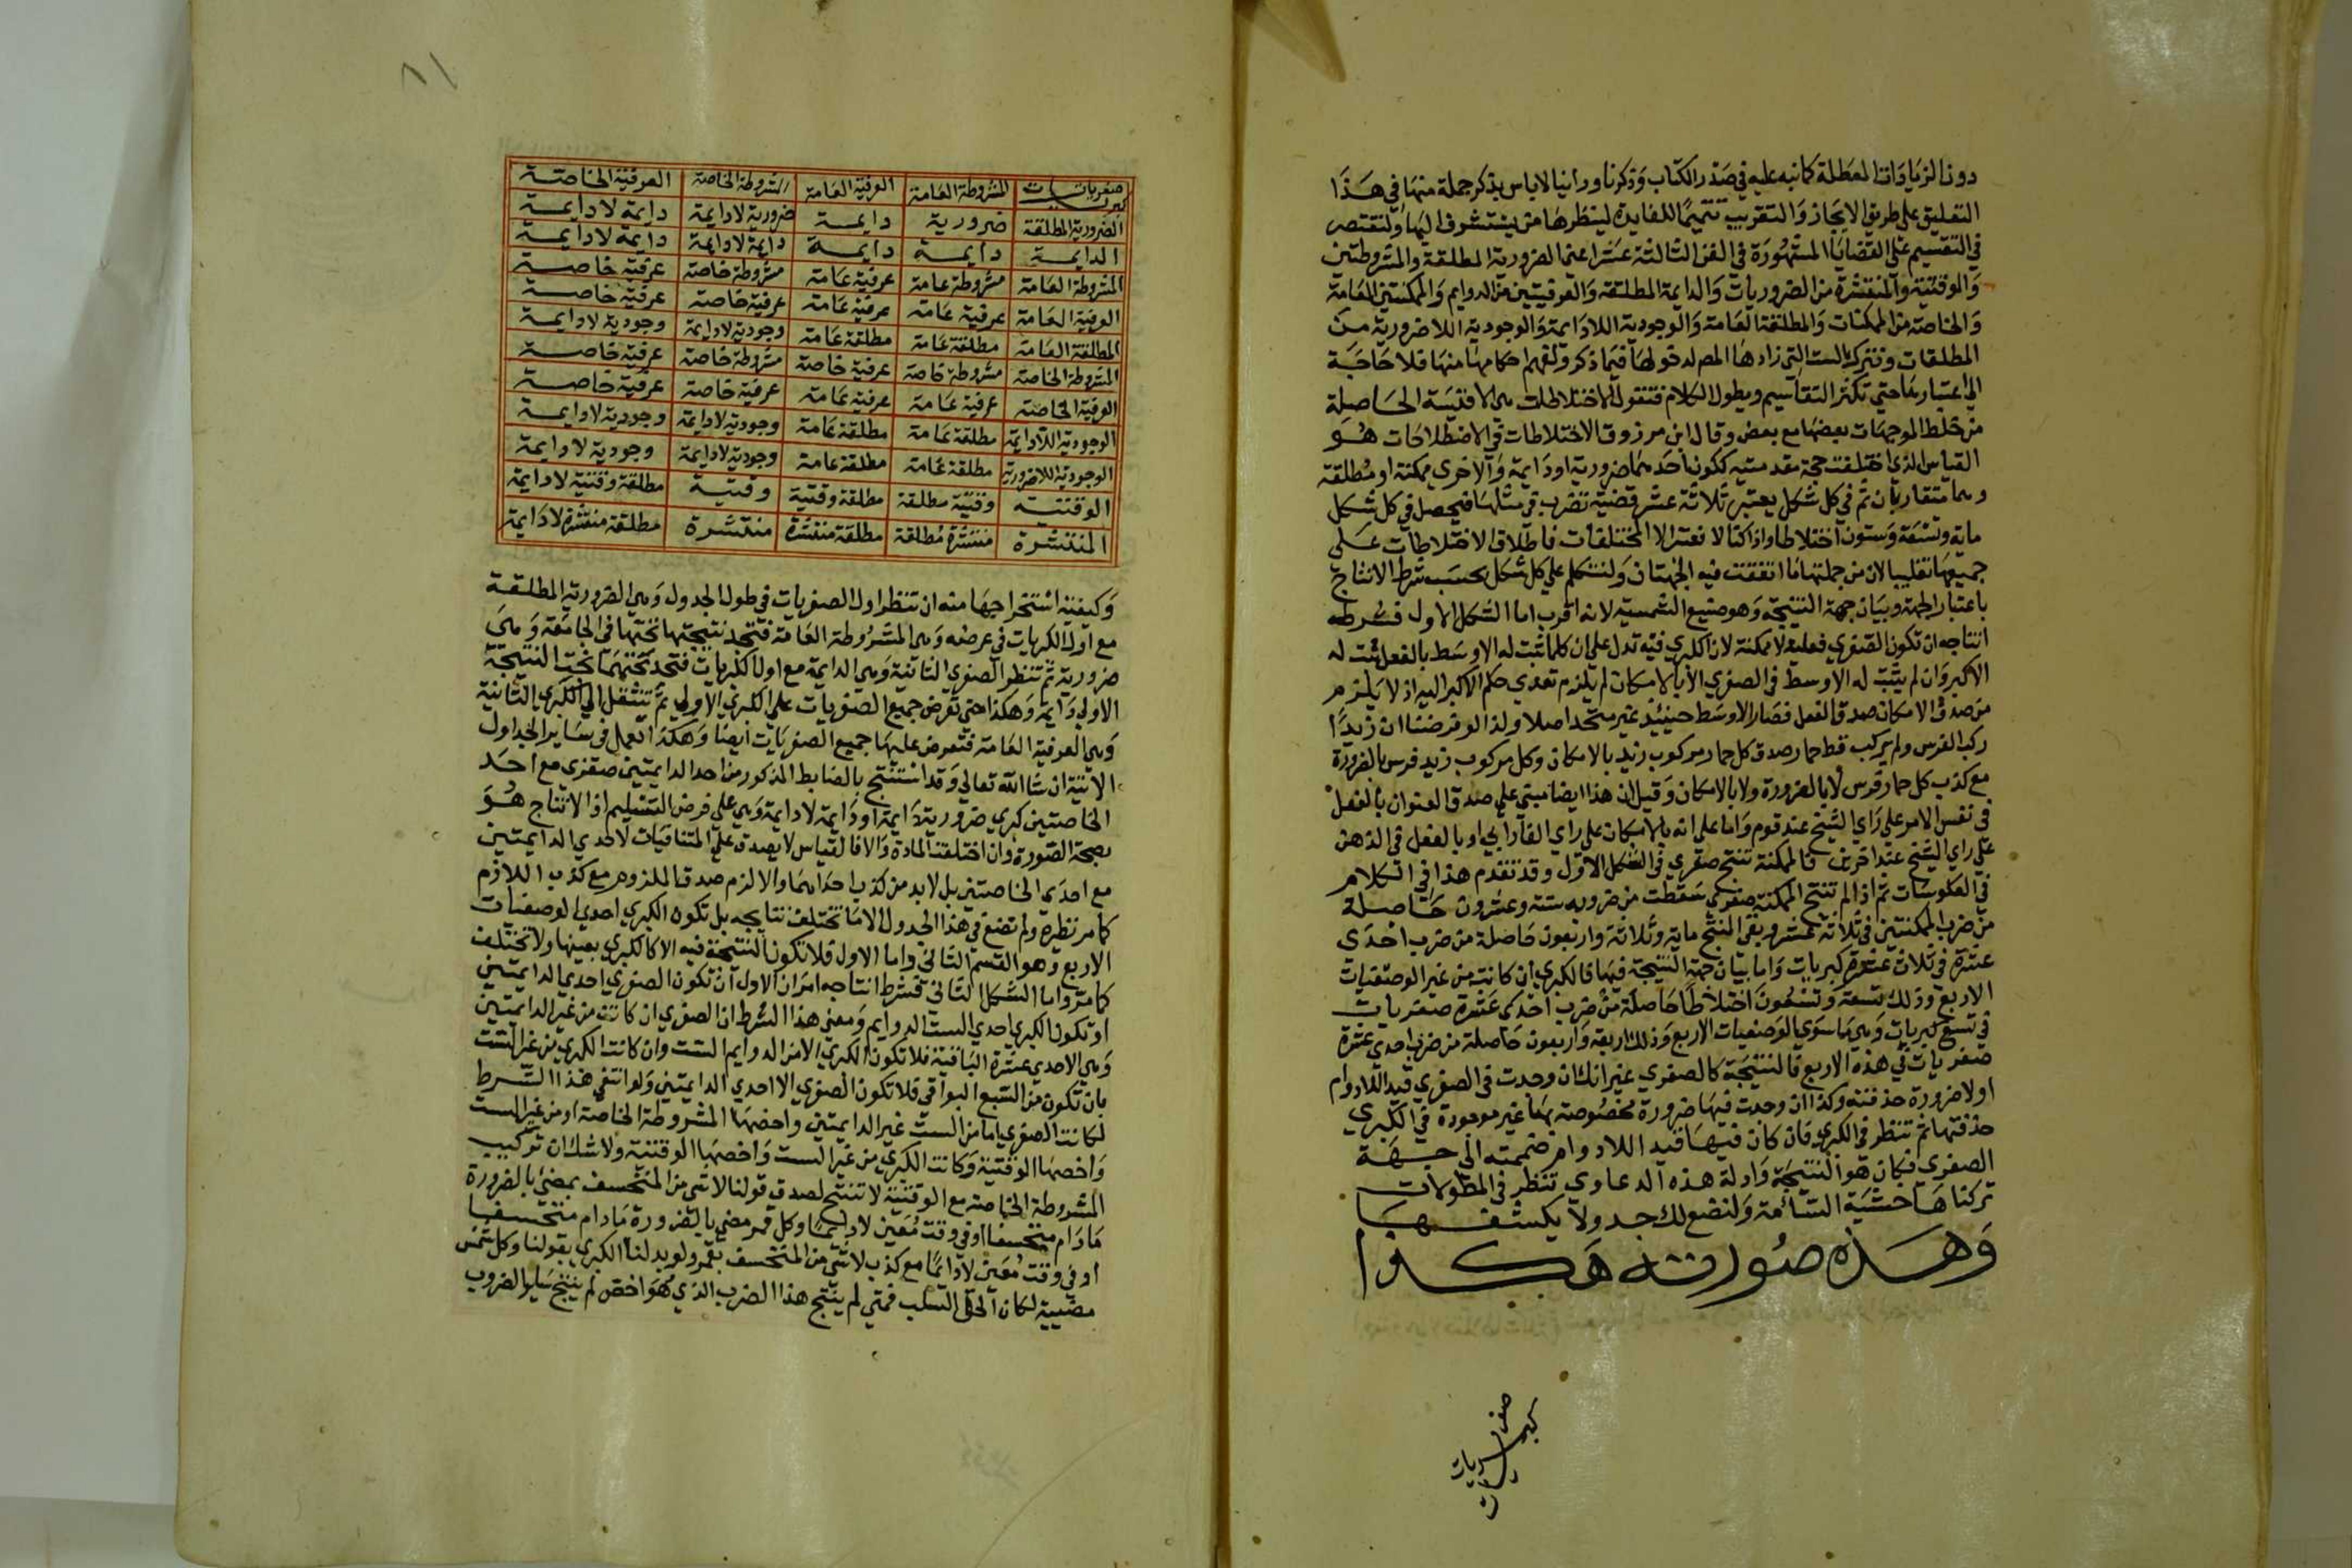 دون الزيادات المعطلة كما نبه عليه في صدر الكتاب وذكرنا ورأينا لا باس بذكر جملة منها في هذا
التعليق على طريق الايجاز والتقريب تتميما للفايدة لينظرها من يستشرف اليها ولنقتصر
في التقسيم على القضايا المشهورة في الفن الثالثة عشر اعني الضرورية المطلقة والمشروطتين
والوقتية والمنتشرة من الضروريات والدايمة المطلقة والعرفيتين من الدوايم والممكنتين العامة
والخاصة من الممكنات والمطلقة العامة والوجودية اللادايمة والوجودية اللاضرورية من
المطلقات ونترك الست التي زادها المص لدخولها فيما ذكر ولفهم احكامها منها فلا حاجة
الي اعتبارها حتي تكثر التقاسيم ويطول الكلام فنقول الاختلاطات هي الاقيسة الحاصلة
من خلط الموجهات بعضها مع بعض وقال ابن مرزوق الاختلاطات في الاصطلاحات هو
القياس الذي اختلفت جهة مقدمتيه ككون احدهما ضرورية او دايمة والاخري ممكنة او مطلقة
وهما متقاربان ثم في كل شكل يعتبر ثلاثة عشر قضية تضرب في مثلها فيحصل في كل شكل
ماية وتسعة وستون اختلاطا واذا كنا لا نعتبر الا المختلفات فاطلاق الاختلاطات على
جميعها تغليبا لان من جملتها ما اتفقت فيه الجهتان ولنتكلم علي كل شكل بحسب شرط الانتاج
باعتبار الجهة وبيان جهة النتيجة وهو صنيع الشمسية لانه اقرب اما الشكل الاول فشرط
انتاجه ان تكون الصغري فعلية لا ممكنة لان الكبري فيه تدل علي ان كلما ثبت له الاوسط بالفعل ثبت له
الاكبر وان لم يثبت له الاوسط في الصغري الا بالامكان لم يلزم تعدي حكم الاكبر اليه اذ لا يلزم
من صدق الامكان صدق الفعل فصار الاوسط حينئذ غير متحد اصلا ولذا لو فرضنا ان زيدا
ركب الفرس ولم يركب قط حمار صدق كل حمار مركوب زيد بالامكان وكل مركوب زيد فرس بالضرورة
مع كذب كل حمار فرس لا بالضرورة ولا بالامكان وقيل ان هذا ايضا مبني علي صدق العنوان بالفعل
في نفس الامر علي راي الشيخ عند قوم واما على انه بالامكان على راي الفارابي او بالفعل في الذهن
علي راي الشيخ عند اخرين فالممكنة تنتج صغري في الشكل الاول وقد تقدم هذا في الكلام
في العكوسات ثم اذا لم تنتج الممكنة صغري سقطت من ضروبه ستة وعشرون حاصلة
من ضرب الممكنتين في ثلاثة عشر وبقي المنتج ماية وثلاثة واربعون حاصلة من ضرب احدى
عشرة في ثلاث عشرة كبريات واما بيان جهة النتيجة فيها فالكبري ان كانت من غير الوصفيات
الاربع وذلك تسعة وتسعون اختلاطا حاصلة من ضرب احدى عشرة صغريات
في تسع كبريات وهي ما سوي الوصفيات الاربع وذلك اربعة واربعون حاصلة من ضرب احدي عشرة
صغريات في هذه الاربع فالنتيجة كالصغري غير انك ان وجدت في الصغري قيد اللادوام
او لا ضرورة حذفته وكذا ان وجدت فيها ضرورة مخصوصة بها غير موجودة في الكبري
حذفتها ثم تنظر في الكبري فان كان فيها قيد اللادوام ضممته الى جهة
الصغري فكان هو النتيجة وادلة هذه الدعاوي تنظر في المطولات
تركناها خشية السآمة ولنضع لك جدولا يكشفها
وهذه صورته هكذا
صغريات
كبريات
صغريات كبريات | المشروطة العامة | العرفية العامة | المشروطة الخاصة | العرفية الخاصة
الضرورية المطلقة | ضرورية | دايمة | ضرورية لادايمة | دايمة لادايمة
الدايمة | دايمة | دايمة | دايمة لادايمة | دايمة لادايمة
المشروطة العامة | مشروطة عامة | عرفية عامة | مشروطة خاصة | عرفية خاصة
العرفية العامة | عرفية عامة | عرفية عامة | عرفية خاصة | عرفية خاصة
المطلقة العامة | مطلقة عامة | مطلقة عامة | وجودية لادايمة | وجودية لادايمة
المشروطة الخاصة | مشروطة خاصة | عرفية خاصة | مشروطة خاصة | عرفية خاصة
العرفية الخاصة | عرفية عامة | عرفية عامة | عرفية خاصة | عرفية خاصة
الوجودية اللادايمة | مطلقة عامة | مطلقة عامة | وجودية لادايمة | وجودية لادايمة
الوجودية اللاضرورية | مطلقة عامة | مطلقة عامة | وجودية لادايمة | وجودية لادايمة
الوقتية | وقتية مطلقة | مطلقة وقتية | وقتية | مطلقة وقتية لادايمة
المنتشرة | منتشرة مطلقة | مطلقة منتشرة | منتشرة | مطلقة منتشرة لادايمة
وكيفية استخراجها منه ان تنظر اول الصغريات في طول الجدول وهي الضرورية المطلقة
مع اول الكبريات في عرضه وهي المشروطة العامة فتجد نتيجتها تحتها في الجامعة وهي
ضرورية ثم تنظر الصغري الثانية وهي الدايمة مع اول الكبريات فتجد تحتهما تحت النتيجة
الاولي دايمة وهكذا حتي تعرض جميع الصغريات علي الكبري الاولي ثم تنتقل الي الكبري الثانية
وهي العرفية العامة فتعرض عليها جميع الصغريات ايضا وهكذا العمل في ساير الجداول
الاتية ان شا الله تعالي وقد استنتج بالضابط المذكور من احد الدايمتين صغري مع احد
الخاصتين كبري ضرورية دايمة او دايمة لادايمة وهي علي فرض التسليم اذ الانتاج هو
بصحة الصورة وان اختلفت المادة والا فالقياس لا يصدق علي المتنافيات لاحدي الدايمتين
مع احدي الخاصتين بل لا بد من كذب احداهما والا لزم صدق الملزوم مع كذب اللازم
كما مر نظيره ولم تضع في هذا الجدول الا ما تختلف نتايجه بل تكون الكبري احدي الوصفيات
الاربع وهو القسم الثاني واما الاول فلا تكون النتيجة فيه الا كالكبري بعينها ولا تختلف
كما مر واما الشكل الثاني فشرط انتاجه امران الاول ان تكون الصغري احدي الدايمتين
او تكون الكبري احدي الست الدوايم ومعني هذا الشرط ان الصغري ان كانت من غير الدايمتين
وهي الاحدي عشرة الباقية فلا تكون الكبري الا من الدوايم الست وان كانت الكبري من غير الست
بان تكون من السبع البواقي فلا تكون الصغري الا احدي الدايمتين ولو انتفي هذا الشرط
لكانت الصغري اما من الست غير الدايمتين واخصها المشروطة الخاصة او من غير الست
واخصها الوقتية وكانت الكبري من غير الست واخصها الوقتية ولا شك ان تركيب
المشروطة الخاصة مع الوقتية لا تنتج لصدق قولنا لا شي من المنخسف بمضئ بالضرورة
مادام منخسفا او في وقت معين لا دايما وكل قمر مضئ بالضرورة مادام منخسفا
او في وقت معين لا دايما مع كذب لا شي من المنخسف بقمر ولو بدلنا الكبري بقولنا وكل شمس
مضيية لكان الحق السلب فمتي لم ينتج هذا الضرب الذي هو اخص لم ينتج ساير الضروب